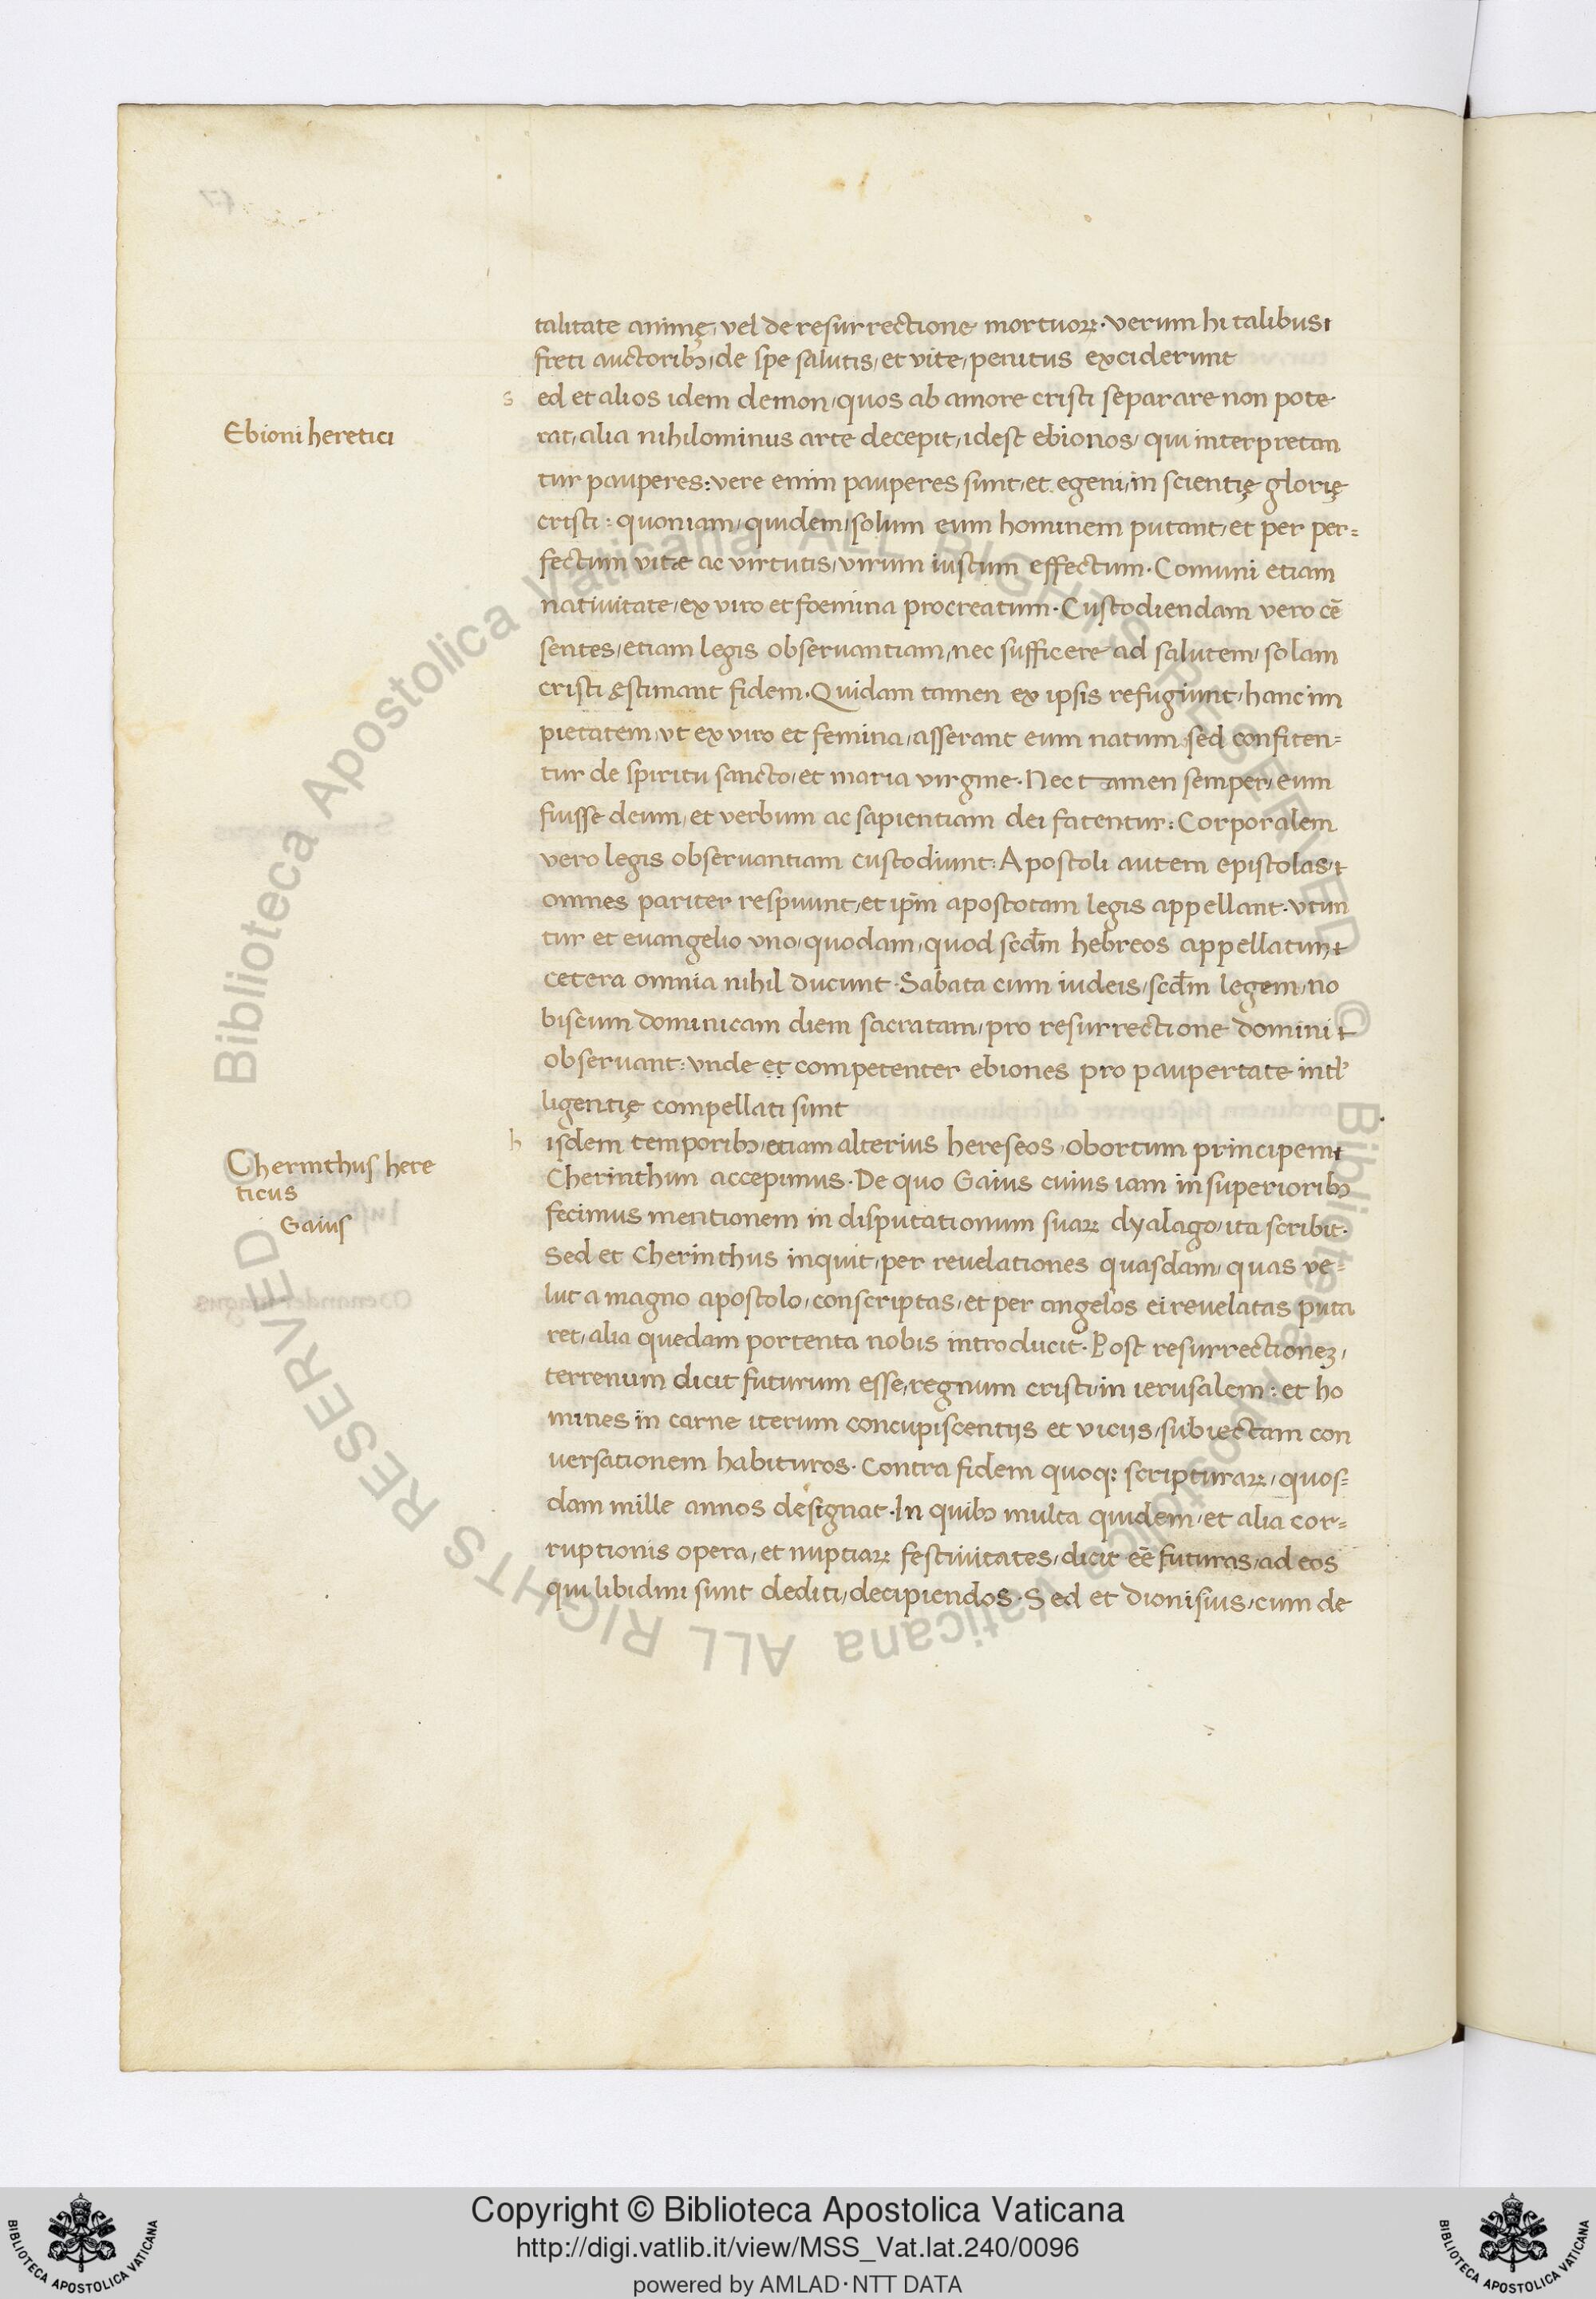 talitate animę, vel de resurrectione mortuoꝝ. verum hi talibus
freti auctoribꝫ, de spe salutis, et vite, penitus exciderunt
s ed et alios idem demon, quos ab amore cristi separare non pote
Ebioni heretici
rat, alia nihilominus arte decepit, idest ebionos, qui interpretan
tur pauperes: vere enim pauperes sunt, et egeni, in scientię glorię
cristi: quoniam, quidem, solum eum hominem putant, et per per=
fectum vitæ ac virtutis, virum iustum effectum. Comuni etiam
nativitate, ex viro et foemina procreatum. Custodiendam vero cē
sentes, etiam legis observantiam, nec sufficere ad salutem, solam
cristi ęstimant fidem. Quidam tamen ex ipsis refugiunt, hanc im
pietatem, ut ex viro et femina, asserant eum natum sed confiten=
tur de spiritu sancto, et maria virgine. Nec tamen semper, eum
fuisse deum, et verbum ac sapientiam dei fatentur: Corporalem
vero legis observantiam custodiunt: Apostoli autem epistolas
omnes pariter respuunt, et ip̄m apostotam legis appellant. Utun
tur et euangelio uno, quodam, quod scd̄m hebreos appellatum
cetera omnia nihil ducunt. Sabata cum iudeis, scd̄m legem, no
biscum dominicam diem sacratam, pro resurrectione domini
observant: unde et competenter ebiones pro paupertate intl̓
ligentię compellati sunt
h isdem temporibꝫ, etiam alterius hereseos, obortum principem
Cherinthus here
ticus
Cherinthum accepimus. De quo Gaius cuius iam in superioribꝫ
Gaius
fecimus mentionem in disputationum suaꝝ dyalago, ita scribit.
Sed et Cherinthus inquit, per revelationes quasdam, quas ve=
lut a magno apostolo, conscriptas, et per angelos ei revelatas puta
ret, alia quedam portenta nobis introducit. Post resurrectioneꝫ,
terrenum dicit futurum esse, regnum cristi, in ierusalem: et ho
mines in carne iterum concupiscentijs et vicijs, subiectam con
versationem habituros. Contra fidem quoqꝫ scripturaꝝ, quos=
dam mille annos designat. In quibꝫ multa quidem, et alia cor=
ruptionis opera, et nuptiaꝝ festivitates, dicit eē futuras, ad eos
qui libidini sunt dediti, decipiendos. Sed et dionisius, cum de
Copyright © Biblioteca Apostolica Vaticana
http://digi.vatlib.it/view/MSS_Vat.lat.240/0096
powered by AMLAD·NTT DATA
BIBLIOTECA APOSTOLICA VATICANA
BIBLIOTECA APOSTOLICA VATICANA
© Biblioteca Apostolica Vaticana ALL RIGHTS RESERVED
© Biblioteca Apostolica Vaticana ALL RIGHTS RESERVED